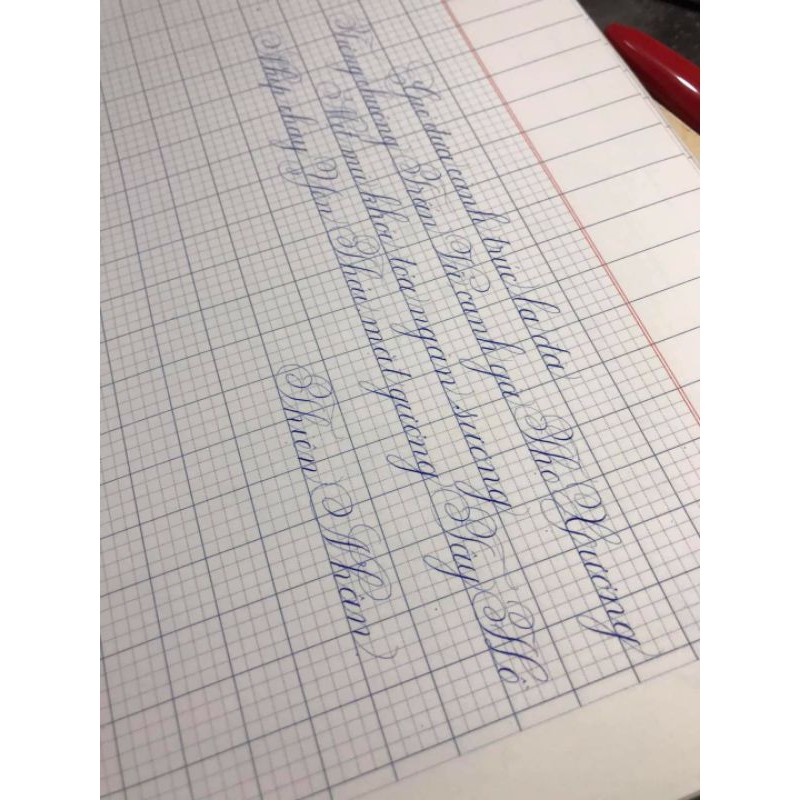 Gió đưa cành trúc la đà
Tiếng chuông Trấn Vũ canh gà Thọ Xương
Mịt mù khói tỏa ngàn sương
Nhịp chày Yên Thái mặt gương Tây Hồ
Thiên Nhân